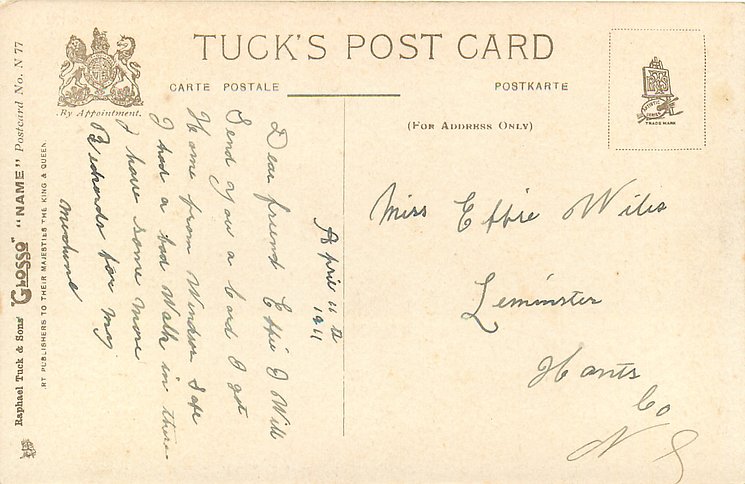 TUCK'S POST CARD
CARTE POSTALE
POSTKARTE
(FOR ADDRESS ONLY)
By Appointment.
TRADE MARK
Raphael Tuck & Sons' "GLOSSO" "NAME" Postcard No. N 77
ART PUBLISHERS TO THEIR MAJESTIES THE KING & QUEEN.
April 11
1911
Dear friend Effie I Will
Send you a Card I got
Home from Windsor Safe
I had a bad Walk in there
I have some more
for my
Miss Effie Wiles
Leminster
Hants
Co
N S